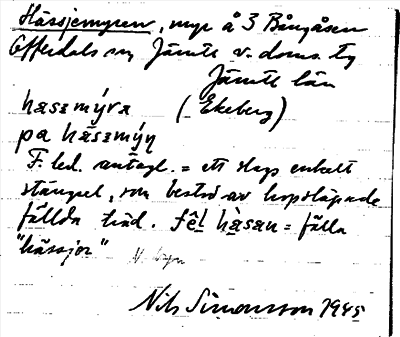 Hässjemyren, myr å 3 Bångåsen
Offerdals sn Jämtl. v. doms. tg
Jämtl. län
hasmýra (Ekeberg)
pa hásmýn
F. led. antagl. = ett slags enkelt
stängsel, som bestod av hopsläpade
fällda träd. fêl hàsan = fälla
"hässjor"
Nils Simonsson 1945